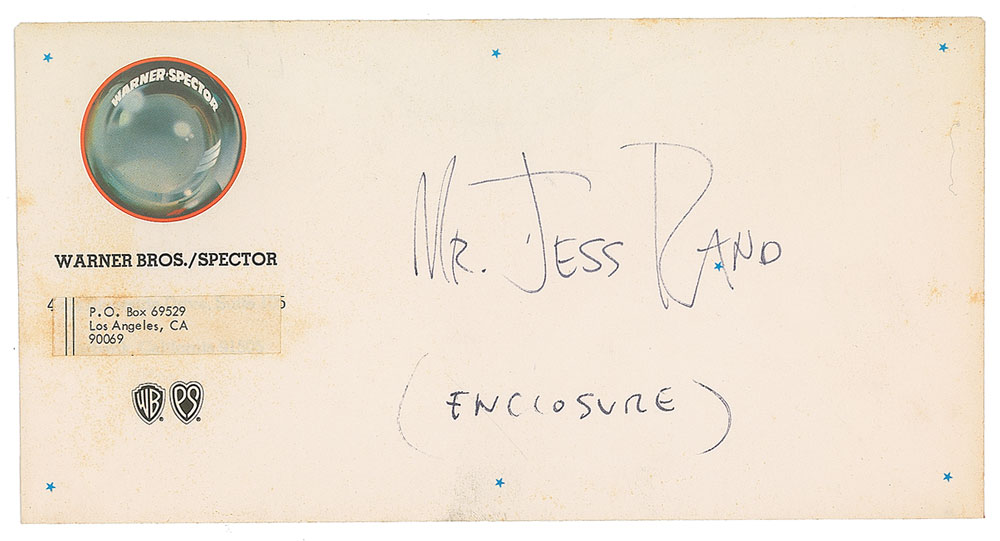 WARNER·SPECTOR
WARNER BROS./SPECTOR
4 5
P.O. Box 69529
Los Angeles, CA
90069
WB PS
MR. JESS RAND
(ENCLOSURE)